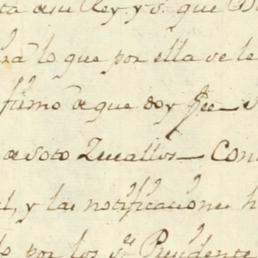 ta de su Rey y s.r que D
ara lo que por ella se le
firmó de que doy fee
de Soto Zeuallos Con
l, y las notificaciones h
o por los s.res Presidente